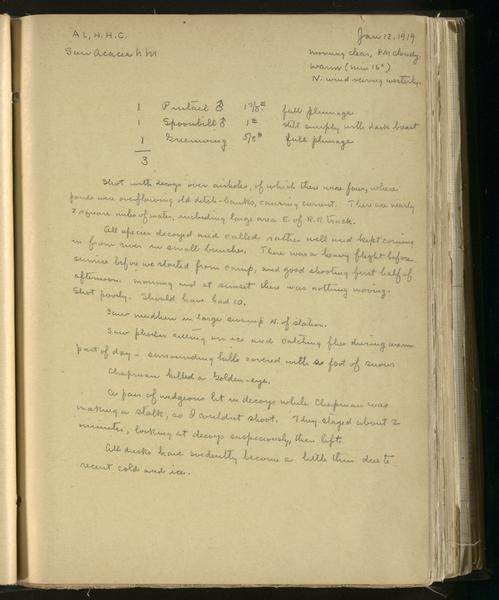 AL, H.H.C. Jan 12, 1919
San Acacia N M morning clear, PM cloudy.
Warm (min 16°)
N. wind veering westerly.
1 Pintail ♂ 1 7/8 # full plumage
1 Spoonbill ♂ 1 # still simply with dark breast
1 Greenwing 5/8 # full plumage
3
Shot with decoys over airholes, of which there were four, where
ponds were overflowing old ditch-banks, causing current. There are nearly
2 square miles of water, including large area E of R.R. track.
All species decoyed and called rather well and kept coming
in from river in small bunches. There was a heavy flight before
sunrise before we started from camp, and good shooting first half of
afternoon. morning and at sunset there was nothing moving.
Shot poorly. Should have had 10.
Saw mudhen in large swamp N. of station.
Saw phoebe sitting on ice and catching flies during warm
part of day - surrounding hills covered with foot of snow
Chapman killed a Golden-eye.
A pair of widgeons lit in decoys while Chapman was
making a stalk, so I couldnt shoot. They stayed about 2
minutes, looking at decoys suspiciously, then left.
All ducks have evidently become a little thin due to
recent cold and ice.